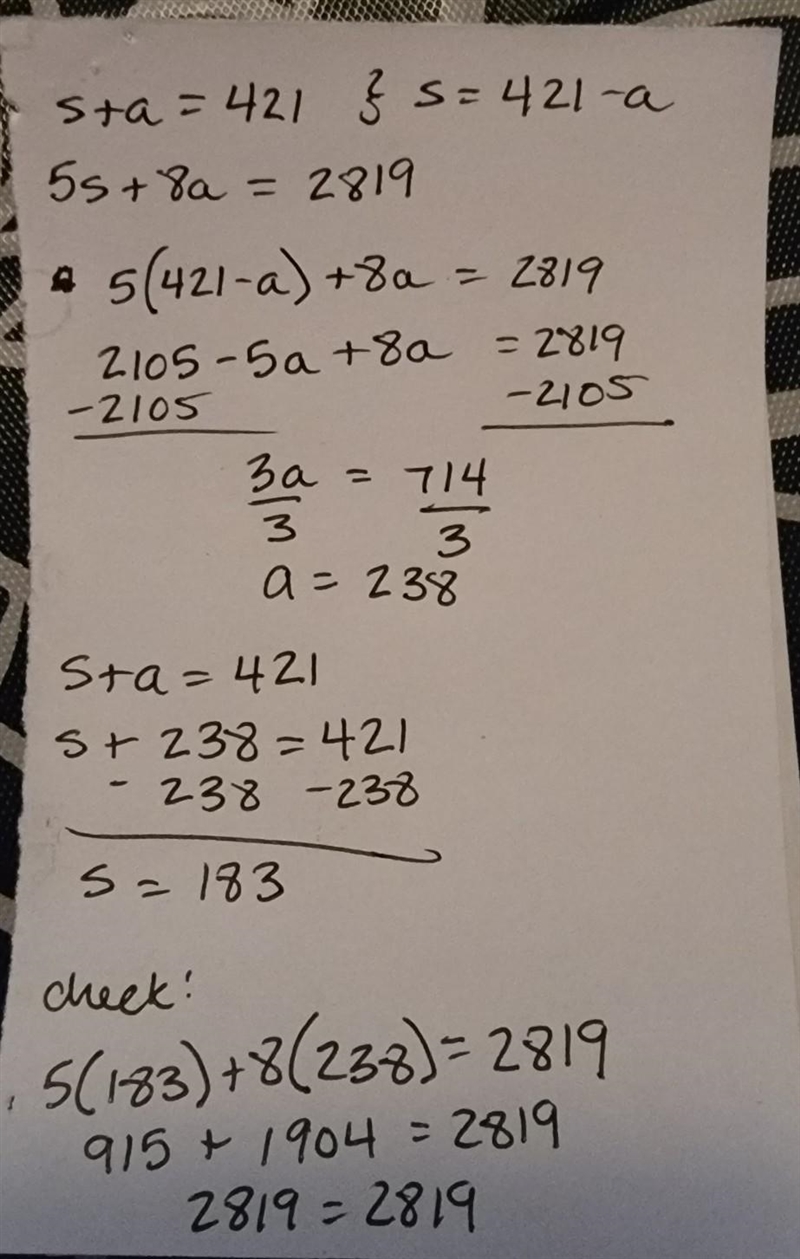 s+a = 421 } s = 421 - a
5s + 8a = 2819
5(421-a) + 8a = 2819
2105 - 5a + 8a = 2819
-2105 -2105
3a = 714
3 3
a = 238
s+a = 421
s + 238 = 421
- 238 -238
s = 183
check!
5(183) + 8(238) = 2819
915 + 1904 = 2819
2819 = 2819